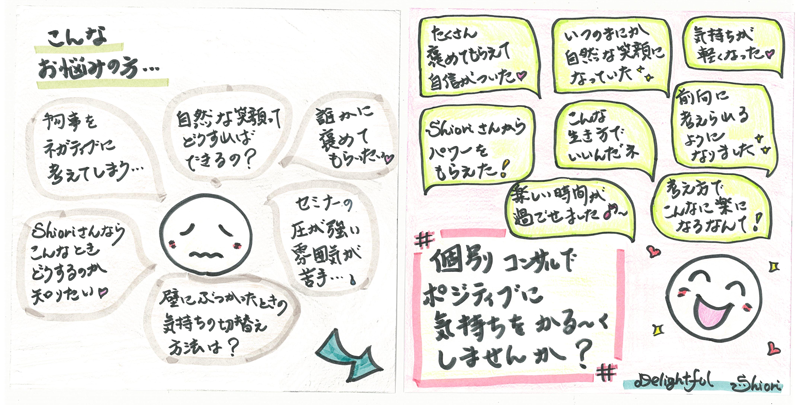 こんな
お悩みの方…
何事を
ネガティブに
考えてしまう…
自然な笑顔って
どうすれば
できるの？
誰かに
褒めて
もらいたい♥
Shioriさんなら
こんなとき
どうするのか
知りたい♥
セミナーの
圧が強い
雰囲気が
苦手…
壁にぶつかったときの
気持ちの切替え
方法は？
たくさん
褒めてもらえて
自信がついた♥
いつのまにか
自然な笑顔に
なっていた
気持ちが
軽くなった♥
Shioriさんから
パワーを
もらえた！
こんな
生き方で
いいんだネ
前向に
考えられる
ように
なりました
楽しい時間が
過ごせました♪
考え方で
こんなに楽に
なるなんて！
#
個別コンサルで
ポジティブに
気持ちをかる〜く
しませんか？
#
Delightful Shiori